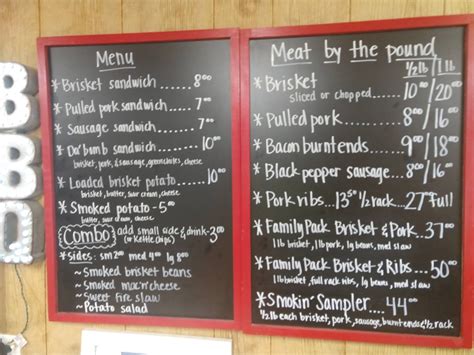 BBQ
Menu
* Brisket sandwich ...... 8.00
* Pulled pork sandwich ..... 7.00
* Sausage sandwich ..... 7.00
* Da' bomb sandwich ..... 10.00
brisket, pork, & sausage, green chiles, cheese
* Loaded brisket potato ..... 10.00
butter, sour cream, brisket, cheese
* Smoked potato - 5.00
butter, sour cream, cheese
Combo add small side & drink - 3.00
(or Kettle chips)
* sides: sm 2.00 med 4.00 lg 8.00
~ smoked brisket beans
~ smoked mac n' cheese
~ sweet fire slaw
~ Potato salad
Meat by the pound
1/2 lb / 1 lb
* Brisket
sliced or chopped ..... 10.00 / 20.00
* Pulled pork ..... 8.00 / 16.00
* Bacon burnt ends ..... 9.00 / 18.00
* Black pepper sausage .... 8.00 / 16.00
* Pork ribs ... 13.50 1/2 rack .. 27.00 Full
* Family Pack Brisket & Pork .. 37.00
1 lb brisket, 1 lb pork, lg beans, med slaw
* Family Pack Brisket & Ribs ... 50.00
1 lb brisket, full rack ribs, lg beans, med slaw
* Smokin' Sampler .... 44.00
1/2 lb each brisket, pork, sausage, burnt ends & 1/2 rack